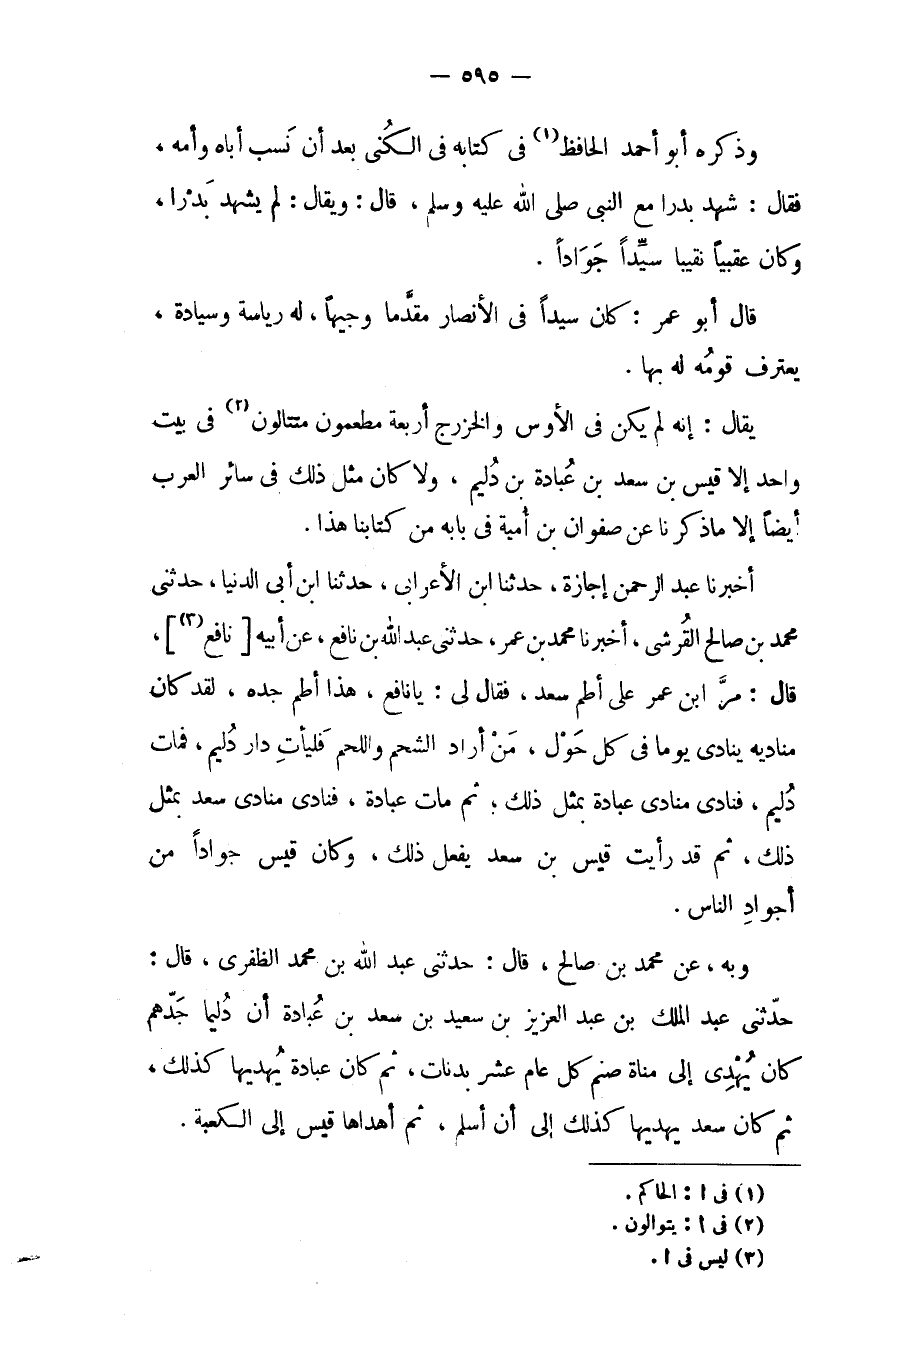 — ٥٩٥ —
وذكره أبو أحمد الحافظ(١) فى كتابه فى الكُنى بعد أن نَسب أباه وأمه ،
فقال : شهد بدرا مع النبى صلى الله عليه وسلم ، قال : ويقال : لم يشهد بَدْرا ،
وكان عقبياً نقيبا سيِّداً جَوَاداً .
قال أبو عمر : كان سيداً فى الأنصار مقدَّما وجيهاً ، له رياسة وسيادة ،
يعترف قومُه له بها .
يقال : إنه لم يكن فى الأوس والخزرج أربعة مطعمون متتالون(٢) فى بيت
واحد إلا قيس بن سعد بن عُبادة بن دُليم ، ولا كان مثل ذلك فى سائر العرب
أيضاً إلا ماذكرنا عن صفوان بن أُمية فى بابه من كتابنا هذا .
أخبرنا عبد الرحمن إجازة ، حدثنا ابن الأعرابى ، حدثنا ابن أبى الدنيا ، حدثنى
محمد بن صالح القُرشى ، أخبرنا محمد بن عمر ، حدثنى عبد الله بن نافع ، عن أبيه [ نافع(٣) ] ،
قال : مرَّ ابن عمر على أطم سعد ، فقال لى : يانافع ، هذا أطم جده ، لقد كان
مناديه ينادى يوما فى كل حَوْل ، مَنْ أراد الشحم واللحم فَليأتِ دار دُليم ، فمات
دُليم ، فنادى منادى عبادة بمثل ذلك ؛ ثم مات عبادة ، فنادى منادى سعد بمثل
ذلك ، ثم قد رأيت قيس بن سعد يفعل ذلك ، وكان قيس جواداً من
أجوادِ الناس .
وبه ، عن محمد بن صالح ، قال : حدثنى عبد الله بن محمد الظفرى ، قال :
حدّثنى عبد الملك بن عبد العزيز بن سعيد بن سعد بن عُبادة أن دُليما جَدّهم
كان يُهْدِى إلى مناة صنم كل عام عشر بدنات ، ثم كان عبادة يُهديها كذلك ،
ثم كان سعد يهديها كذلك إلى أن أسلم ، ثم أهداها قيس إلى الكعبة .
(١) فى ا : الحاكم .
(٢) فى ا : يتوالون .
(٣) ليس فى ا .